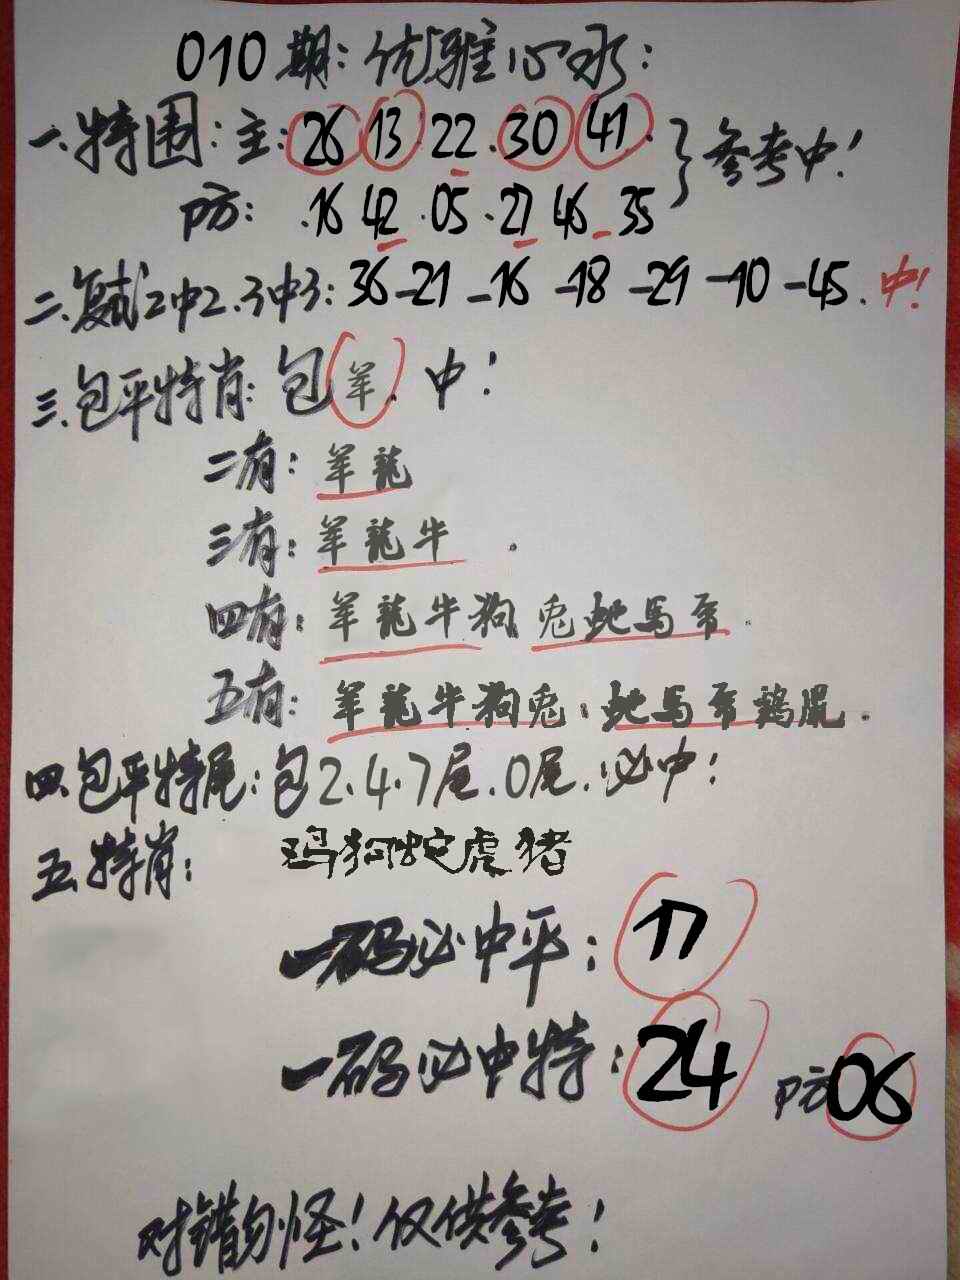 010期:优雅心水:
一.特围:主:26 13 22.30 41. 参考中!
防: .16 42.05.27 46 35
二.复式2中2.3中3:36-21-16-18-29-10-45.中!
三.包平特肖:包羊.中!
二有:羊龍
三有:羊龍牛.
四有:羊龍牛狗兔蛇馬.
五有:羊龍牛狗兔.蛇馬鷄鼠.
四.包平特尾:包2.4.7尾.0尾.必中!
五.特肖: 鸡狗蛇虎猪
一码必中平:17
一码必中特:24 防06
对错勿怪!仅供参考!